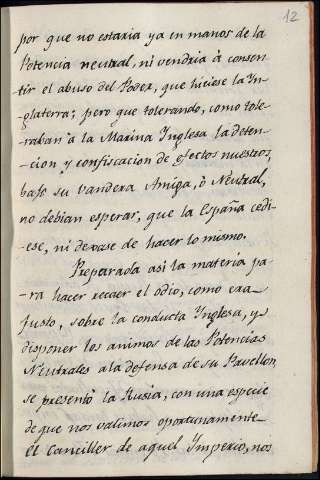 12
por que no estaria ya en manos de la
Potencia neutral, ni vendria à consen-
tir el abuso del Poder, que hiciese la Yn-
-glaterra; pero que tolerando, como tole-
raban à la Marina Ynglesa la deten-
-cion y confiscacion de efectos nuestros,
baxo su vandera Amiga, ò Neutral,
no debian esperar, que la España cedi-
-ese, ni dexase de hacer lo mismo.
Preparada asi la materia pa-
-ra hacer recaer el odio, como era
justo, sobre la conducta Ynglesa, y
disponer los animos de las Potencias
Neutrales a la defensa de su Pavellon,
se presentò la Rusia, con una especie
de que nos valimos oportunamente
El Canciller de aquel Ymperio, nos